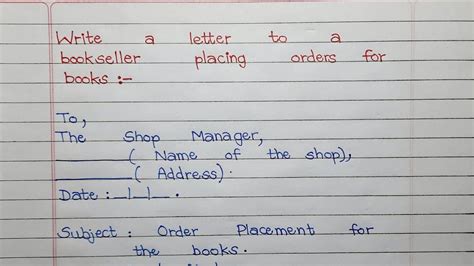 Write a letter to a
bookseller placing orders for
books :-
To,
The Shop Manager,
________( Name of the shop),
________( Address).
Date :_|_|_.
Subject : Order Placement for
the books.